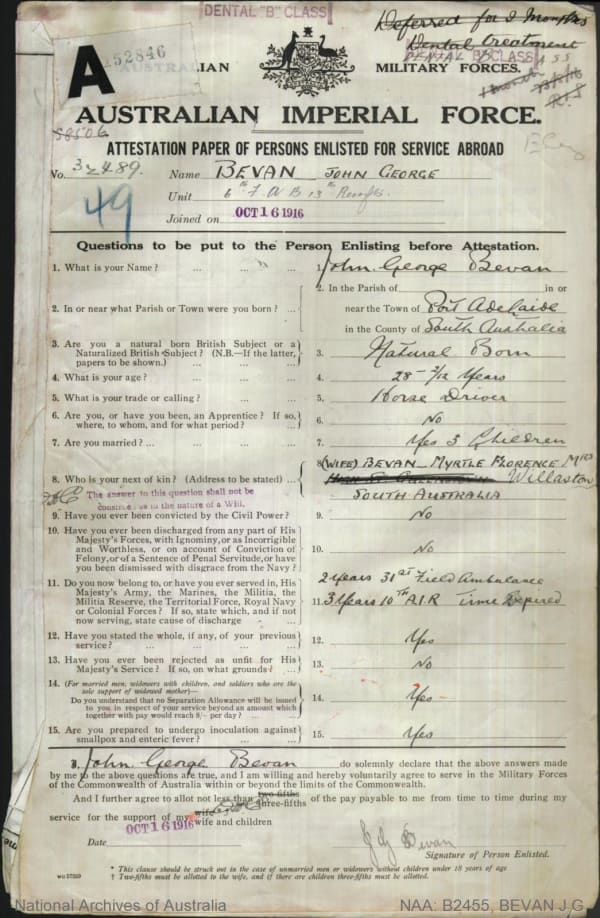 DENTAL "B" CLASS
Deferred for 2 Months
Dental treatment
DENTAL "B" CLASS
A
152846
AUSTRALIAN MILITARY FORCES.
AUSTRALIAN IMPERIAL FORCE.
58506
ATTESTATION PAPER OF PERSONS ENLISTED FOR SERVICE ABROAD
No. 32489. Name BEVAN JOHN GEORGE
49
Unit 6th F A B 13th Reinfts.
Joined on OCT 16 1916
Questions to be put to the Person Enlisting before Attestation.
1. What is your Name? ... ... ... 1. John George Bevan
2. In or near what Parish or Town were you born? ... 2. In the Parish of in or
near the Town of Port Adelaide
in the County of South Australia
3. Are you a natural born British Subject or a
Naturalized British Subject? (N.B.—If the latter,
papers to be shown.) ... ... 3. Natural Born
4. What is your age? ... ... ... 4. 28 3/12 Years
5. What is your trade or calling? ... ... 5. Horse Driver
6. Are you, or have you been, an Apprentice? If so,
where, to whom, and for what period? ... 6. No
7. Are you married? ... ... ... 7. Yes 3 Children
8. Who is your next of kin? (Address to be stated) ... 8. (WIFE) BEVAN MYRTLE FLORENCE MRS
Willaston
SOUTH AUSTRALIA
The answer to this question shall not be
construed as in the nature of a Will.
9. Have you ever been convicted by the Civil Power? 9. No
10. Have you ever been discharged from any part of His
Majesty's Forces, with Ignominy, or as Incorrigible
and Worthless, or on account of Conviction of
Felony, or of a Sentence of Penal Servitude, or have
you been dismissed with disgrace from the Navy? 10. No
11. Do you now belong to, or have you ever served in, His
Majesty's Army, the Marines, the Militia, the
Militia Reserve, the Territorial Force, Royal Navy
or Colonial Forces? If so, state which, and if not
now serving, state cause of discharge ... 11. 2 Years 31ST Field Ambulance
3 Years 10TH A.I.R Time Expired
12. Have you stated the whole, if any, of your previous
service? ... ... ... 12. Yes
13. Have you ever been rejected as unfit for His
Majesty's Service? If so, on what grounds? ... 13. No
14. (For married men, widowers with children, and soldiers who are the
sole support of widowed mother)—
Do you understand that no Separation Allowance will be issued
to you in respect of your service beyond an amount which
together with pay would reach 8/- per day? ... 14. Yes
15. Are you prepared to undergo inoculation against
smallpox and enteric fever? ... ... 15. Yes
I, John George Bevan do solemnly declare that the above answers made
by me to the above questions are true, and I am willing and hereby voluntarily agree to serve in the Military Forces
of the Commonwealth of Australia within or beyond the limits of the Commonwealth.
And I further agree to allot not less than two-fifths three-fifths of the pay payable to me from time to time during my
service for the support of my wife wife and children
OCT 16 1916
Date
J G Bevan
Signature of Person Enlisted.
* This clause should be struck out in the case of unmarried men or widowers without children under 18 years of age
† Two-fifths must be allotted to the wife, and if there are children three-fifths must be allotted.
National Archives of Australia NAA: B2455, BEVAN J.G.